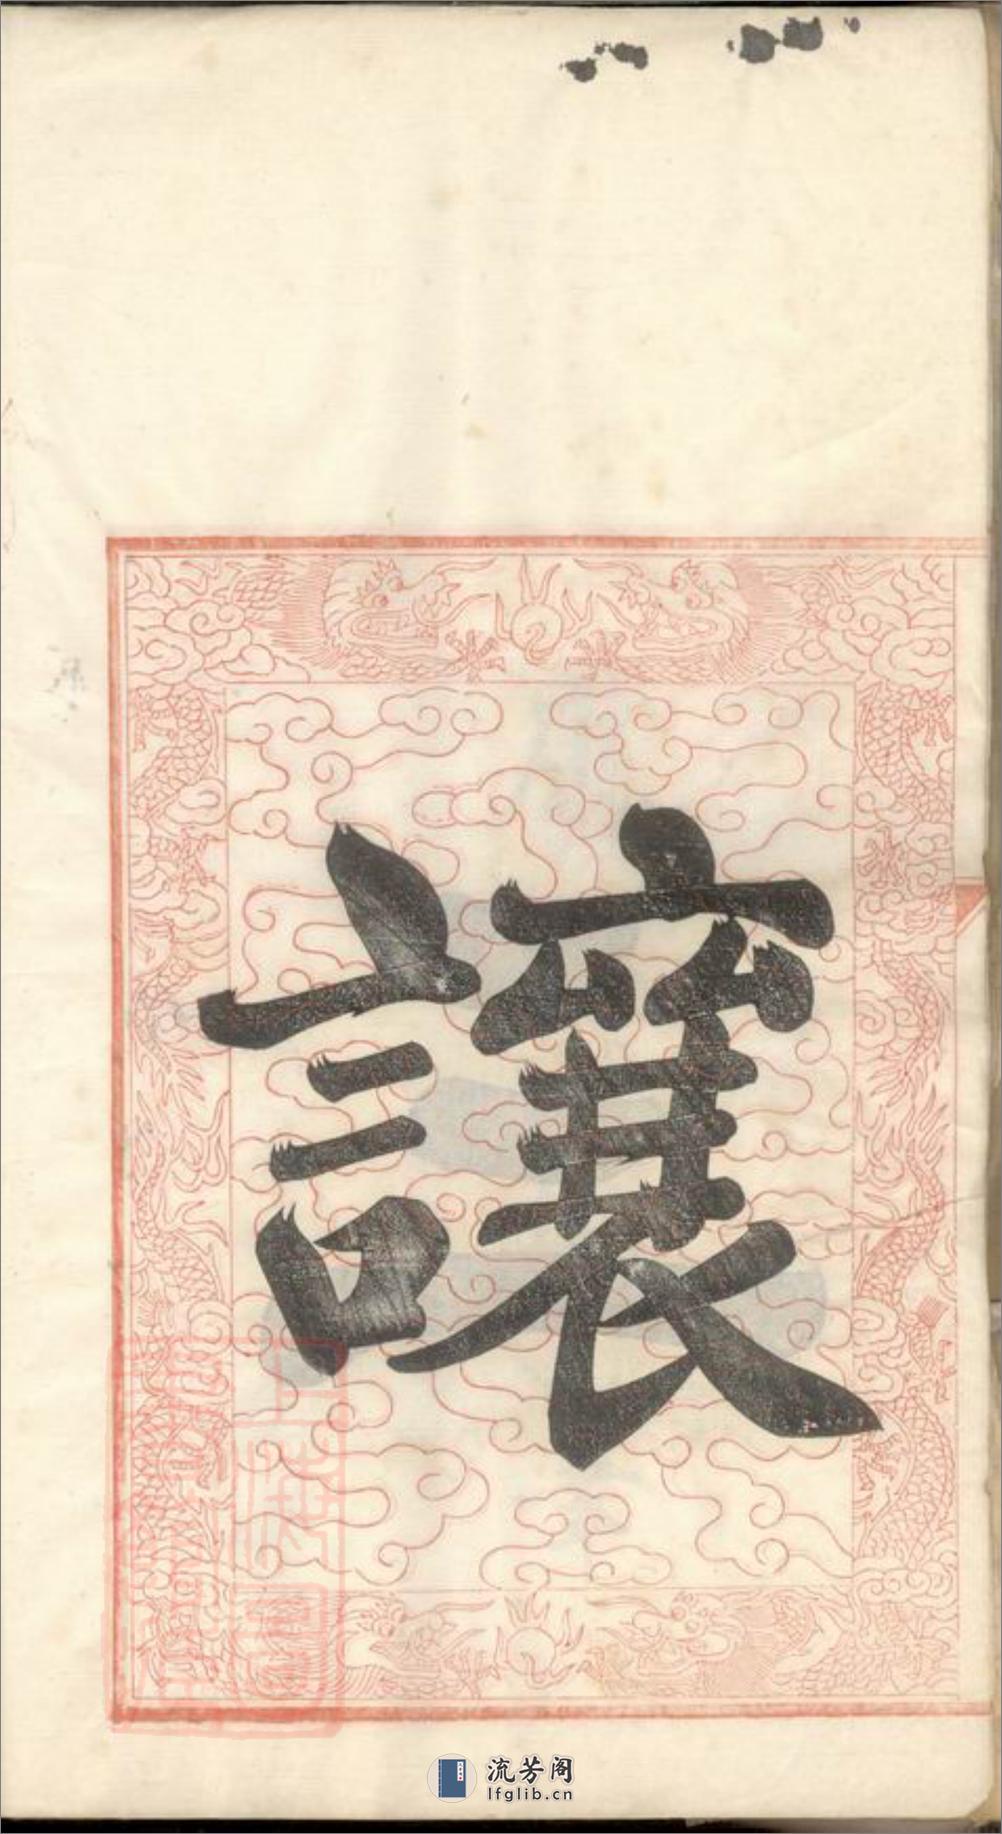 讓
流芳阁
lfglib.cn